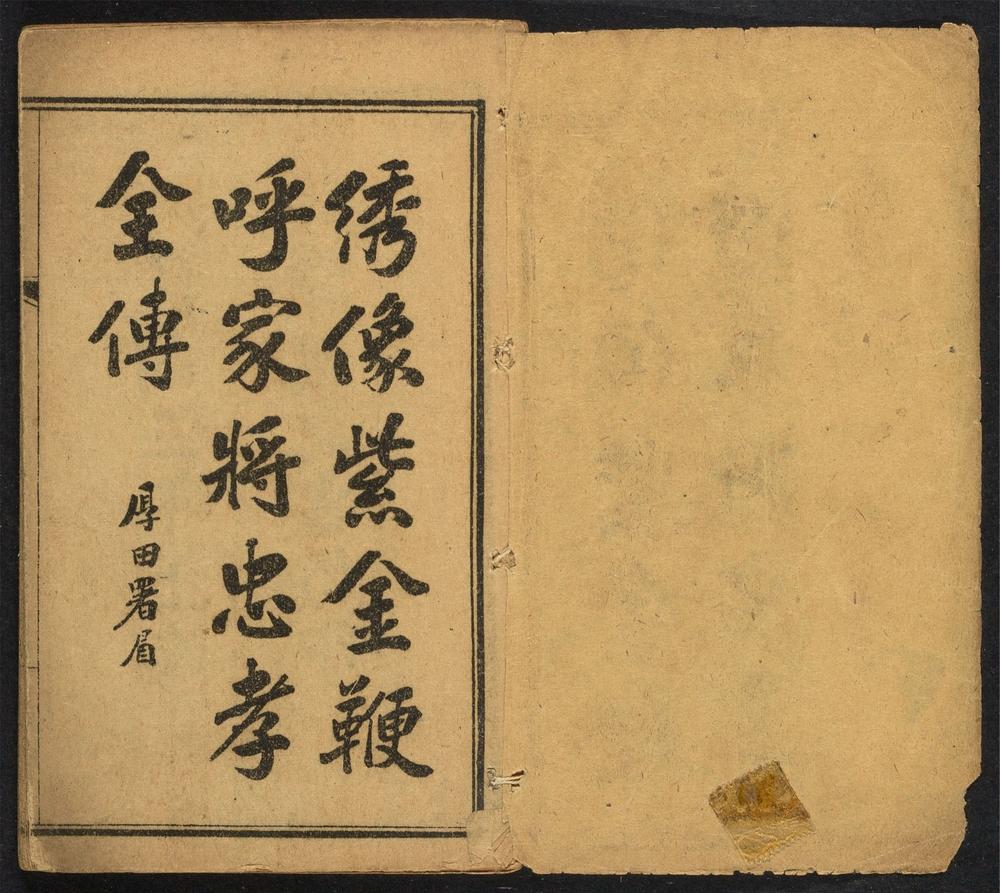 绣像紫金鞭
呼家將忠孝
全傳
厚田署眉